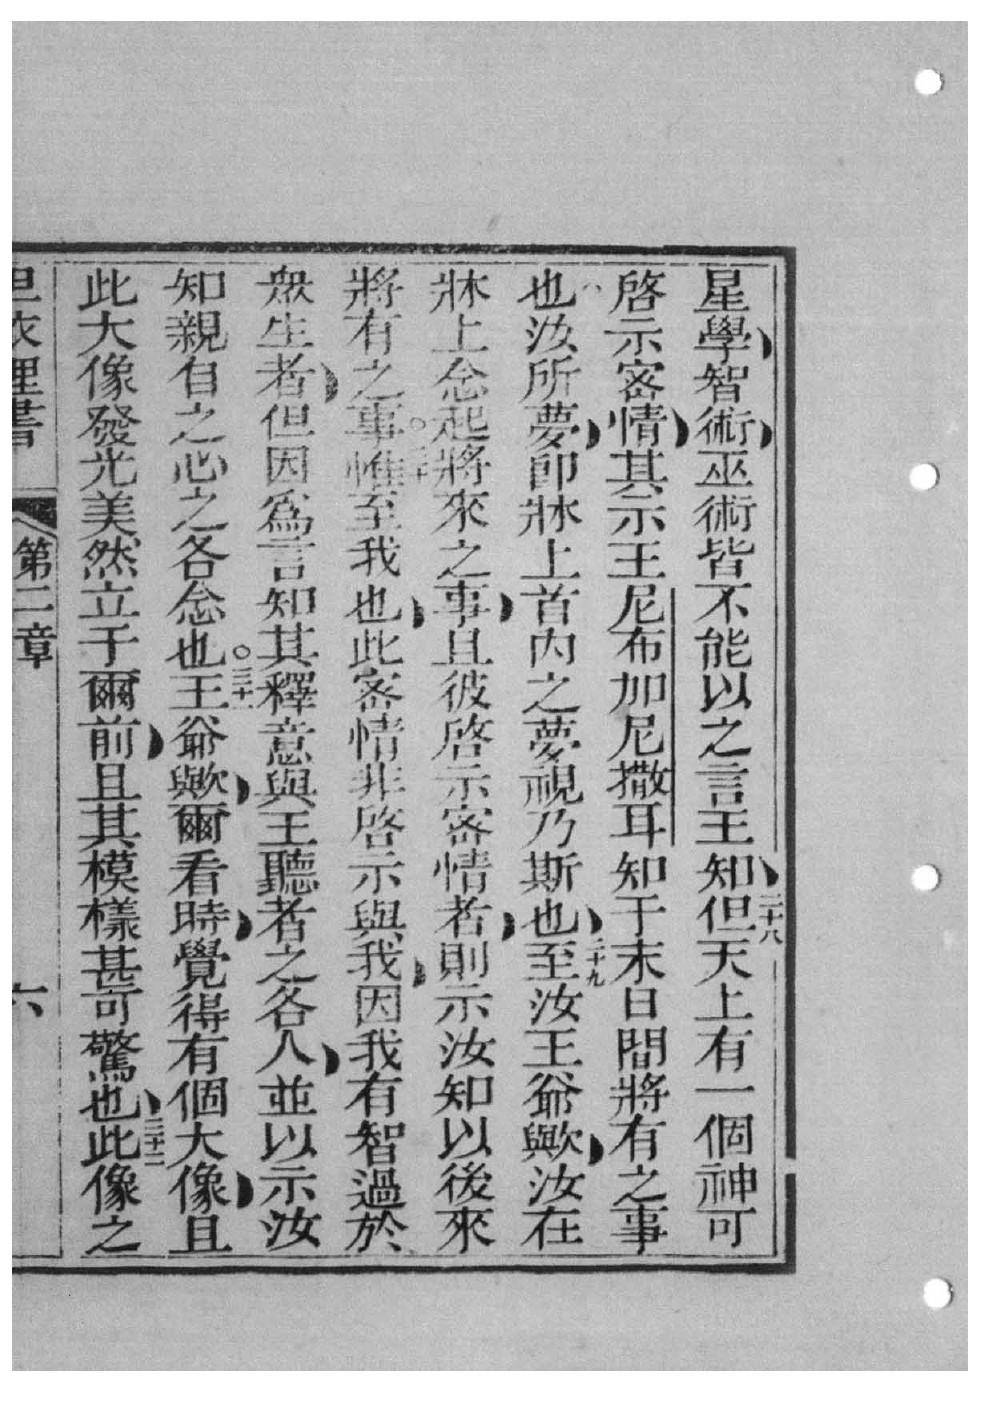 星學智術巫術皆不能以之言王知二十八但天上有一個神可
啓示密情其示王尼布加尼撒耳知于末日間將有之事
也汝所夢卽牀上首內之夢視乃斯也二十九至汝王爺歟汝在
牀上念起將來之事且彼啓示密情者則示汝知以後來
將有之事○三十惟至我也此密情非啓示與我因我有智過於
衆生者但因爲言知其釋意與王聽者之各人並以示汝
知親自之心之各念也○三十一王爺歟爾看時覺得有個大像且
此大像發光美然立于爾前且其模樣甚可驚也三十二此像之
但衣理書 第二章 六